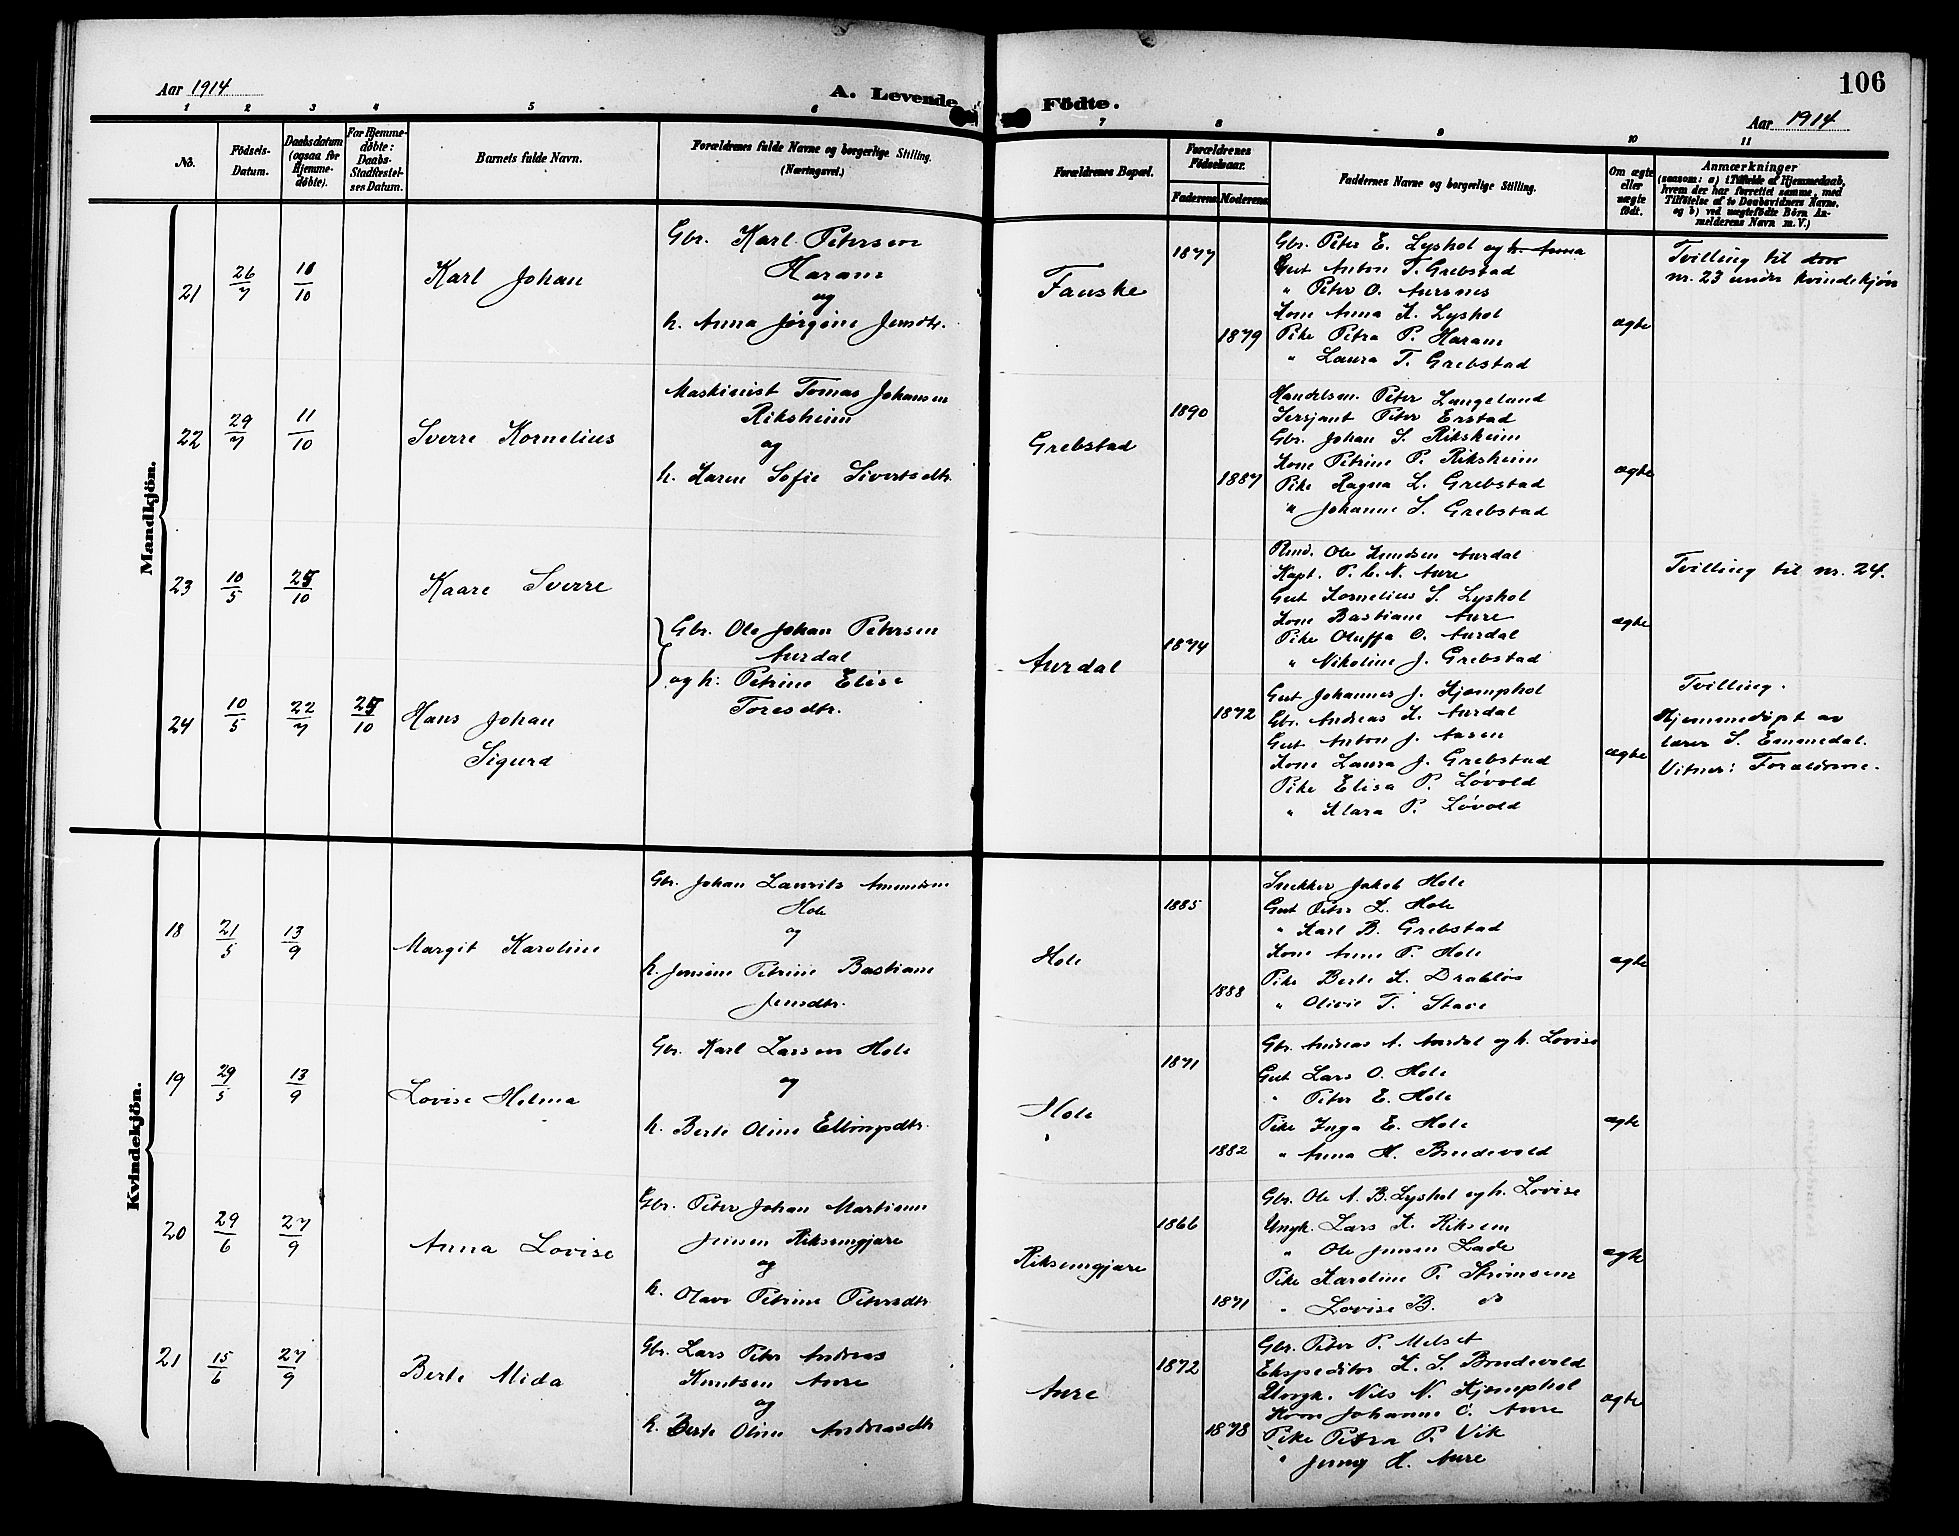 106
Aar 1914
A. Levende Födte.
Aar 1914
1 2 3 4 5 6 7 8 9 10 11
No.
Födsels-
Datum.
Daabsdatum
(ogsaa for
Hjemme-
döbte).
For Hjemme-
döbte:
Daabs-
Stadfæstel-
ses Datum.
Barnets fulde Navn.
Forældrenes fulde Navne og borgerlige Stilling.
(Næringsvei.)
Forældrenes Bopæl.
Forældrenes
Födselsaar.
Faderens Moderens
Faddernes Navne og borgerlige Stilling.
Om ægte
eller
uægte
födt.
Anmærkninger
(saasom: a) i Tilfælde af Hjemmedaab,
hvem der har forrettet samme, med
Tilföielse af to Daabsvidners Navne,
og b) ved uægtefödte Börn An-
melderens Navn m. V.)
Mandkjön.
21
26/7
18/10
Karl Johan
Gbr. Karl Petersen
Harams
og
h. Anna Jørgine Jensdtr.
Fauske
1877
1879
Gbr. Peter E. Lyshol og h. Anna
Gut Anton T. Grebstad
" Peter O. Aursnes
Kone Anna K. Lyshol
Pike Petra P. Haram
" Laura T. Grebstad
ægte
Tvilling til
nr. 23 under kvindekjøn
22
29/7
11/10
Sverre Kornelius
Maskinist Tomas Johansen
Riksheim
og
h. Karen Sofie Sivertsdtr.
Grebstad
1890
1887
Handelsm. Peter Langeland
Sersjant Peter Erstad
Gbr. Johan S. Riksheim
Kone Petrine P. Riksheim
Pike Ragna L. Grebstad
" Johanne S. Grebstad
ægte
23
10/5
25/10
Kaare Sverre
Gbr. Ole Johan Petersen
Aurdal
og h: Petrine Elise
Toresdtr.
Aurdal
1874
1872
Ole Knudsen Aurdal
Kapt. P. C. N. Aure
Gut Kornelius S. Lyshol
Kone Bastiane Aure
Pike Oluffa O. Aurdal
" Nikoline J. Grebstad
ægte
Tvilling til nr. 24.
24
10/5
22/7
25/10
Hans Johan
Sigurd
Gut Johannes J. Kjemphol
Gbr. Andreas K. Aurdal
Gut Anton J. Aasen
Kone Laura J. Grebstad
Pike Elisa P. Løvold
" Klara P. Løvold
ægte
Tvilling.
Hjemmedøpt av
lærer S. Emmedal.
Vitner: Forældrene.
Kvindekjön.
18
21/5
13/9
Margit Karoline
Gbr. Johan Laurits Amundsen
Hole
og
h. Jensine Petrine Bastiane
Jensdtr.
Hole
1885
1888
Snekker Jakob Hole
Gut Peter K. Hole
" Karl B. Grebstad
Kone Anne P. Hole
Pike Berte K. Drabløs
" Olivie T. Stave
ægte
19
29/5
13/9
Lovise Helma
Gbr. Karl Larsen Hole
og
h. Berte Oline Ellingsdtr.
Hole
1871
1882
Gbr. Andreas A. Aurdal og h. Lovise
Gut Lars O. Hole
" Peter E. Hole
Pike Inga E. Hole
" Anna H. Brudevold
ægte
20
29/6
27/9
Anna Lovise
Gbr. Peter Johan Martinus
Jensen Riksemgjære
og
h. Olave Petrine Petersdtr
Riksemgjære
1866
1871
Gbr. Ole A. B. Lyshol og h. Lovise
Ungk. Lars K. Riksem
" Ole Jensen Lade
Pike Karoline P. Strømsem
" Lovise B. ds
ægte
21
15/6
27/9
Berte Alida
Gbr. Lars Peter Andreas
Knutsen Aure
og
h. Berte Oline Andreasdtr
Aure
1872
1878
Gbr. Peter P. Melset
Ekspeditør K. S. Brudevold
Ungk. Nils N. Kjemphol
Kone Johanne O. Aure
Pike Petra P. Vik
" Jenny K. Aure
ægte